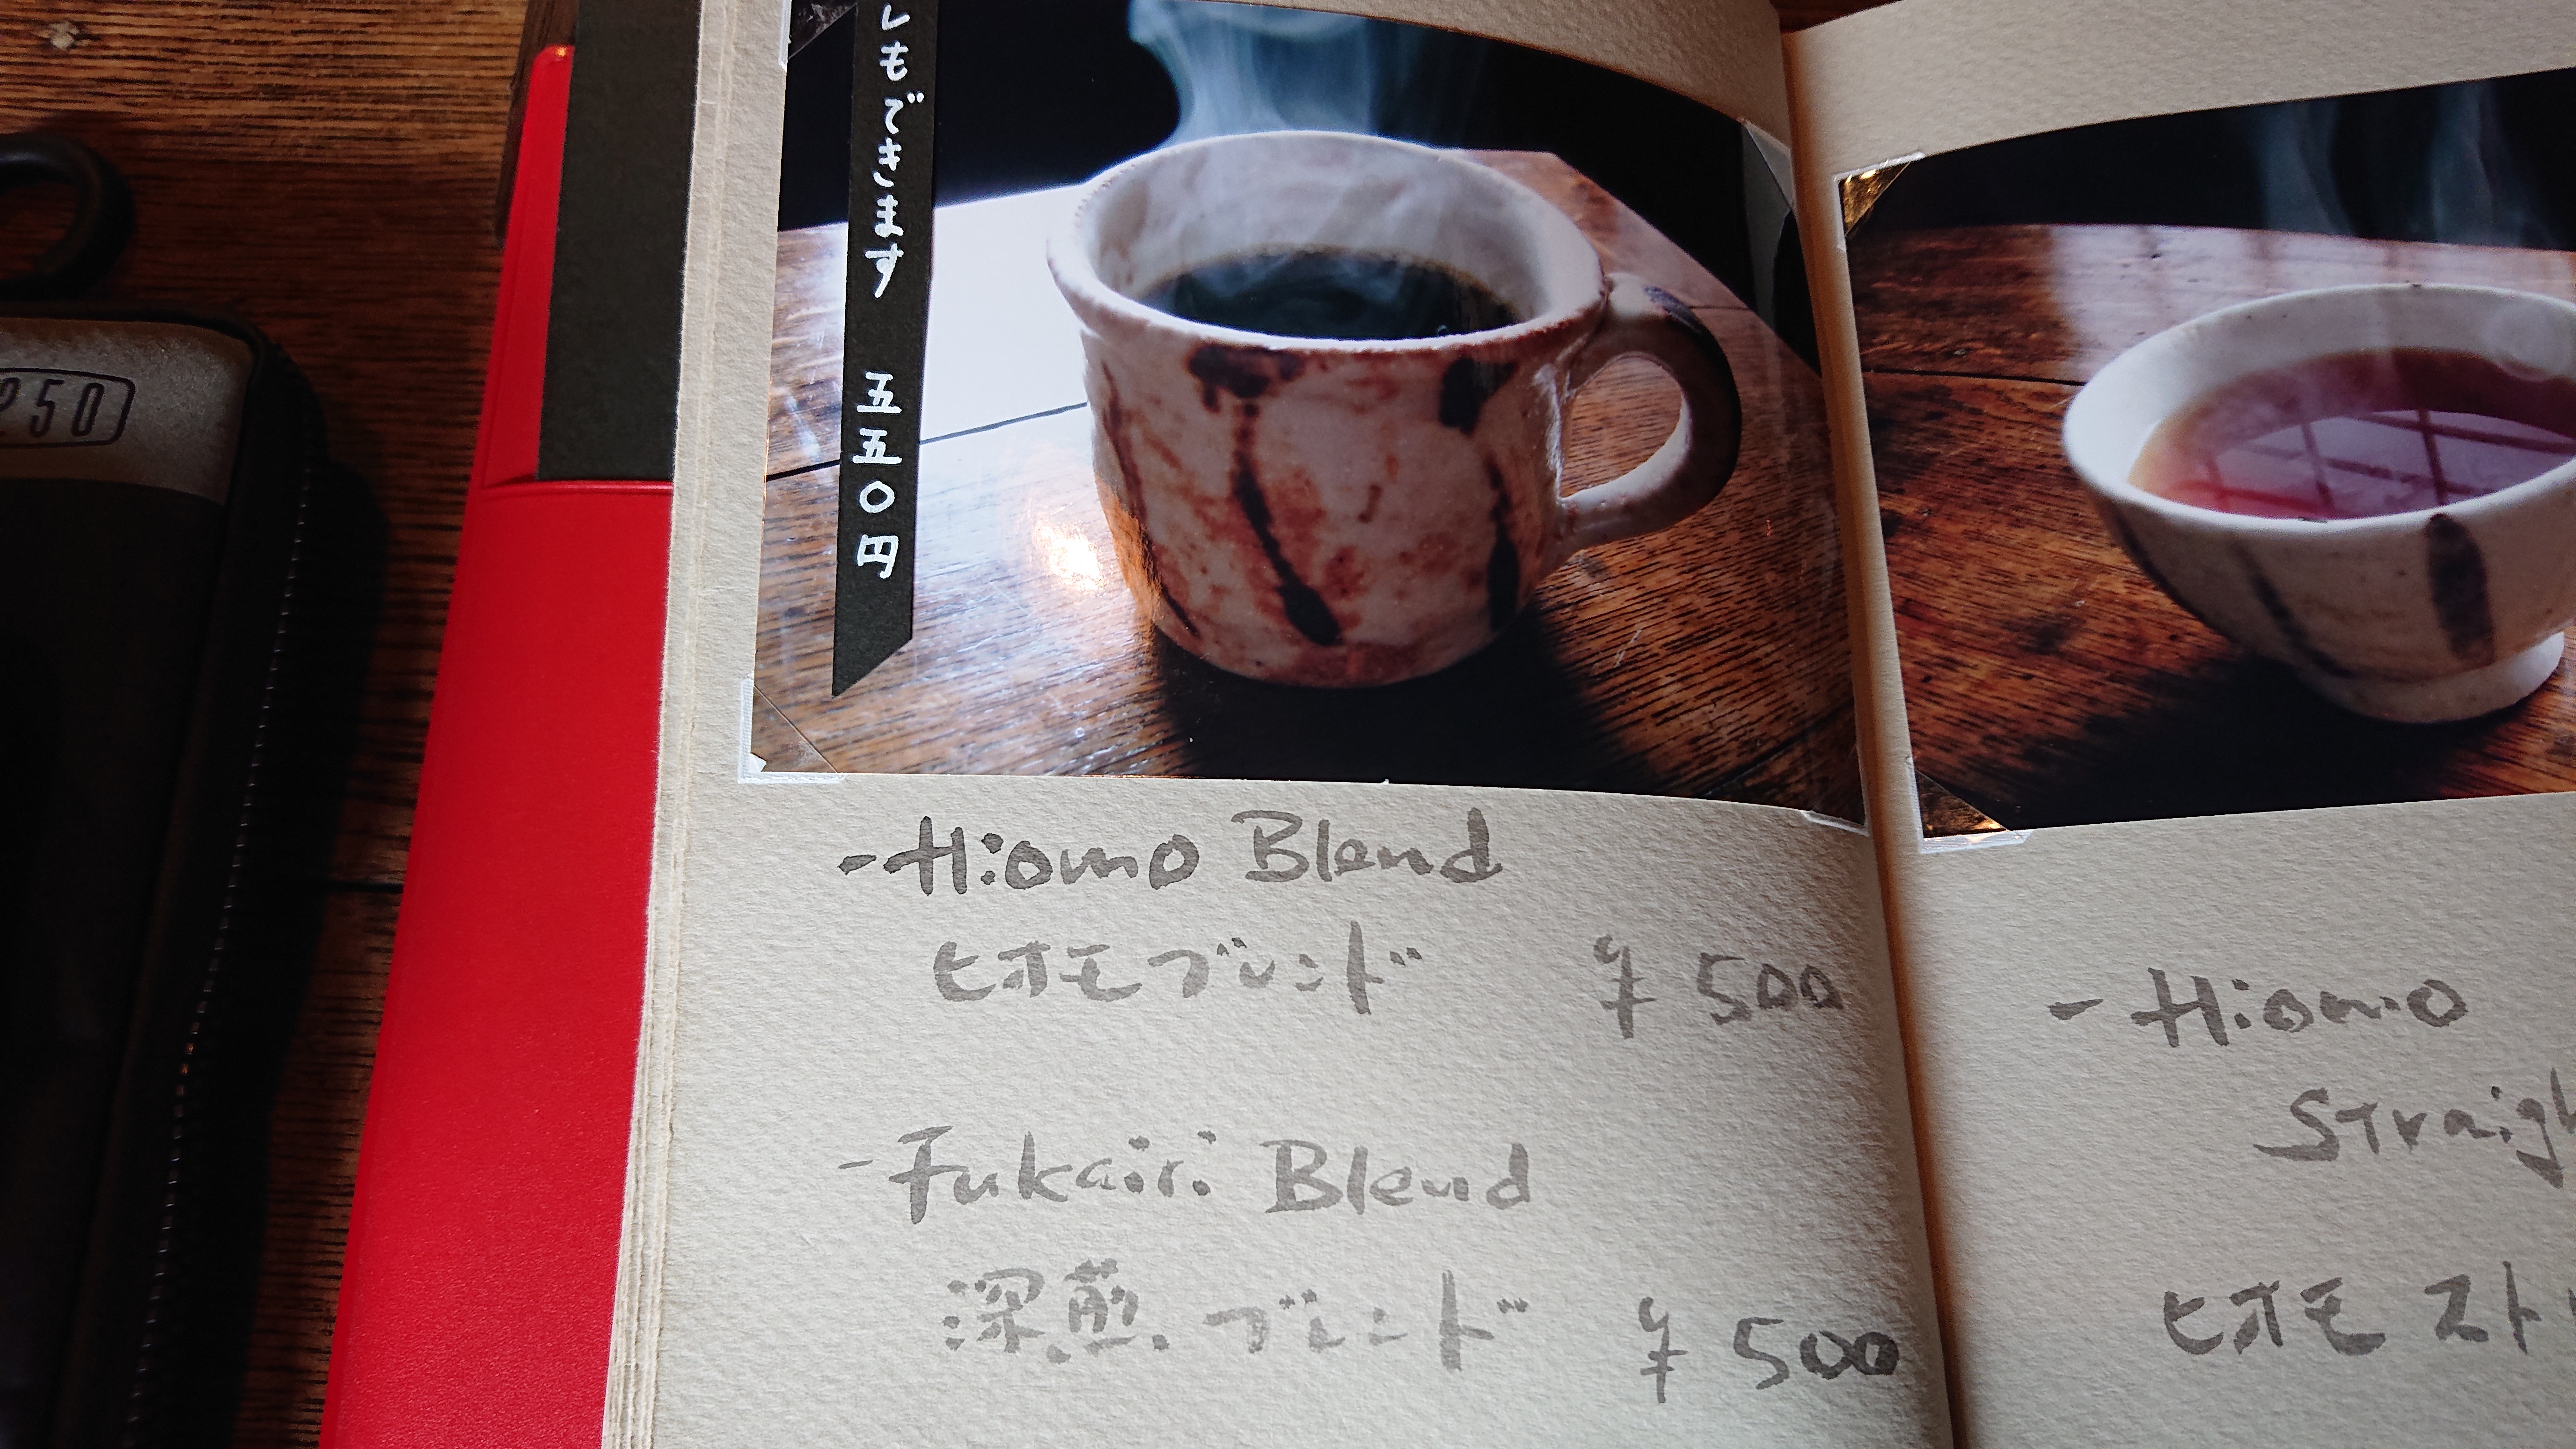 もできます 五五〇円
250
-Hiomo Blend
ヒオモブレンド ¥500
-Fukairi Blend
深煎ブレンド ¥500
- Hiomo
Straigh
ヒオモ スト